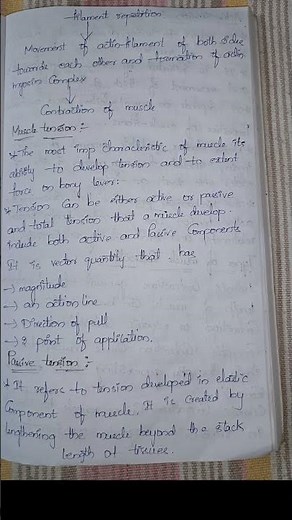 filament repeatition
Movement of actin-filament of both side
towards each other and formation of actin
myosin Complex
Contraction of muscle
Muscle tension :-
* The most imp characteristic of muscle its
ability to develop tension and to extent
force on bony lever.
* Tension Can be either active or passive
and total tension that a muscle develop
include both active and Passive Components
It is vector quantity that has
→ magnitude
→ an action line
→ Direction of pull
→ point of application.
Passive tension :-
* It refers to tension developed in elastic
Component of muscle. It is Created by
lengthening the muscle beyond the slack
length of tissues.